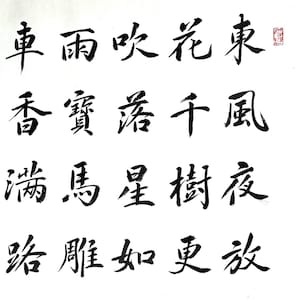 東風夜放
花千樹更
吹落星如
雨寶馬雕
車香滿路